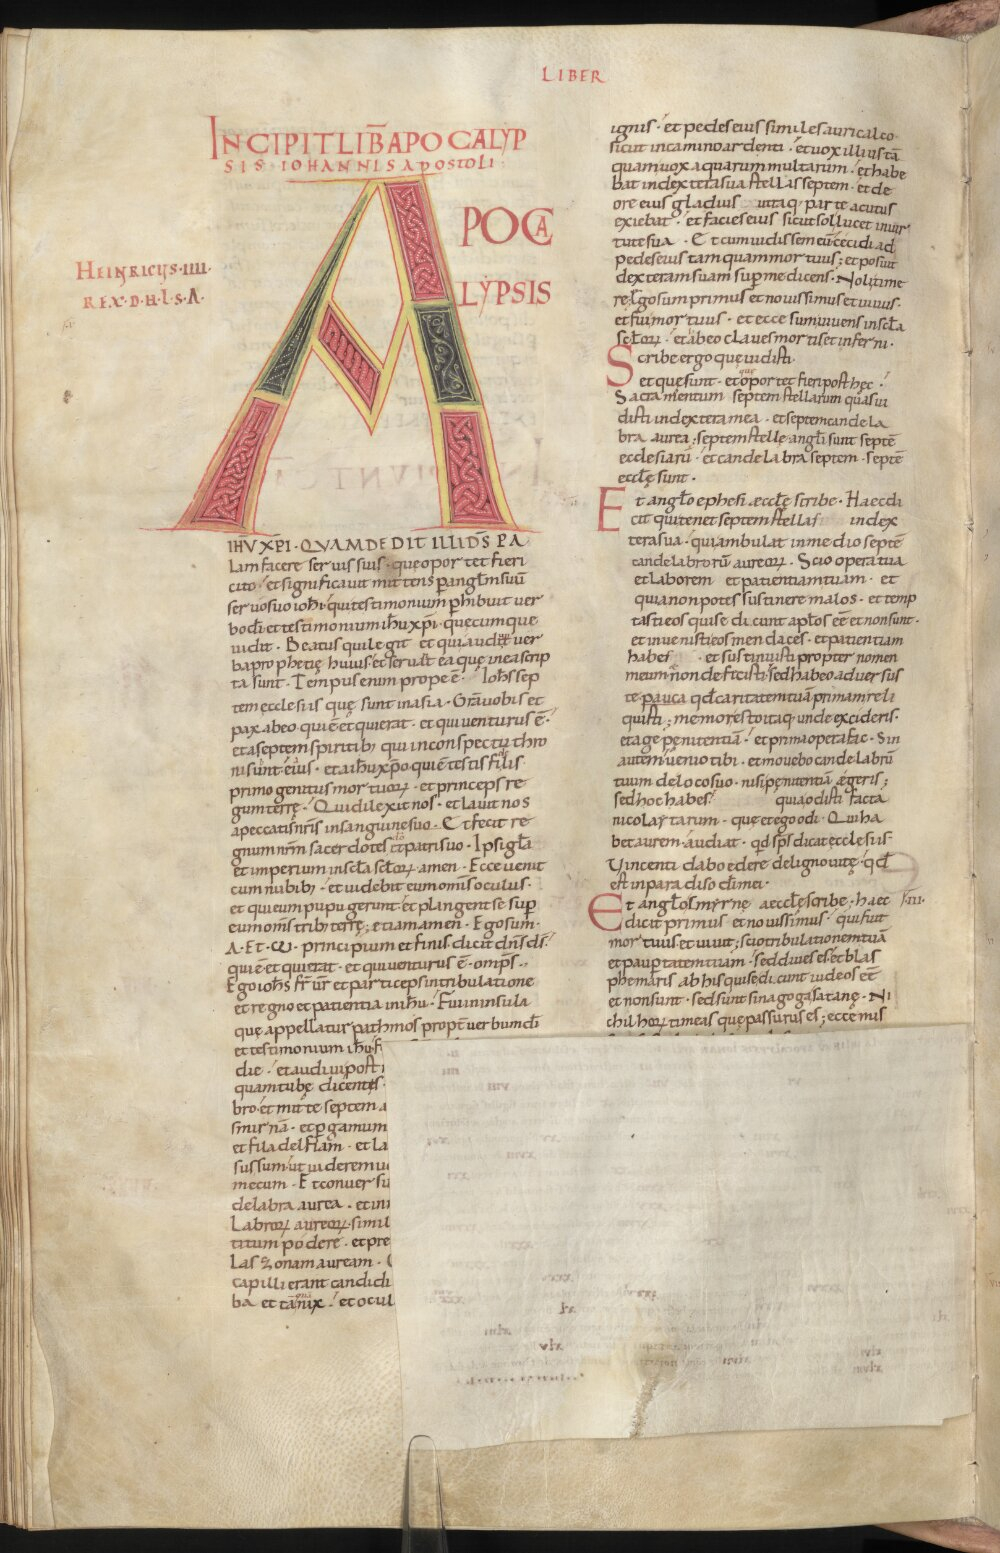 LIBER
INCIPIT LIB̄ APOCALYP
SIS IOHANNIS APOSTOLI
APOCA
LYPSIS
HEINRICUS·IIII·
REX·D·H·L·S·A·
IHV XPI · QVAM DEDIT ILLI D̄S PA
lam facere seruis suis · quę oportet fieri
cito · et significauit mittens p angłm suū
seruo suo iohi · qui testimonium phibuit uer
bo di et testimonium ihu xpi · quęcumque
uidit · Beatus qui legit et qui audit uer
ba prophetię huius et seruat ea quę in ea scrip
ta sunt · Tempus enim prope ē · Iohs sep
tem ecclesiis quę sunt in asia · Gra uobis et
pax ab eo qui ē et qui erat · et qui uenturus ē ·
et a septem spiritib; qui in conspectu thro
ni sunt eius · et a ihu xpo qui ē testis fidelis
primogenitus mortuoꝝ · et princeps re
gum terrę · Qui dilexit nos · et lauit nos
a peccatis nris in sanguine suo · Et fecit re
gnum nrm sacerdotes do et patri suo · Ipsi gła
et imperium in secła secłoꝝ amen · Ecce uenit
cum nubib; · et uidebit eum omis oculus ·
et qui eum pupugerunt · et plangent se sup
eum oms trib; terrę; etiam amen · Ego sum ·
A · Et · ω · principium et finis · dicit dns ds ·
qui ē et qui erat · et qui uenturus ē · omps ·
Ego iohs fr ur et particeps in tribulatione
et regno et patientia in ihu · Fui in insula
quę appellatur pathmos propt uerbum di
et testimonium ihu · f
die · et audiui post
quam tubę dicentis ·
bro · et mitte septem a
smirnā · et pgamum
et filadelfiam · et la
sus sum · ut uiderem u
mecum · Et conuersu
delabra aurea · et in
labroꝝ aureoꝝ · simil
titum podere · et pre
las zonam auream ·
capilli erant candidi
ba et tāquā nix · et ocul
ignis · et pedes eius similes auricalco
sicut in camino ardenti · et uox illius tā
quam uox aquarum multarum · et habe
bat in dextera sua stellas septem · et de
ore eius gladius utraq; parte acutus
exiebat · et facies eius sicut sol lucet in uir
tute sua · Et cum uidissem eū cecidi ad
pedes eius tamquam mortuus; et posuit
dexteram suam sup me dicens · Noli time
re · Ego sum primus et nouissimus et uiuus ·
et fui mortuus · et ecce sum uiuens in secła
secłoꝝ · et abeo claues mortis et inferni ·
Scribe ergo quę uidisti ·
et quę sunt · et quę oportet fieri post hęc ·
Sacramentum septem stellarum quas ui
disti in dextera mea · et septem candela
bra aurea; septem stellę · angli sunt septē
ecclesiarū · et candelabra septem · septē
ecclę sunt ·
Et angło ephesi æcclę scribe · Haec di
cit qui tenet septem stellas in dex
tera sua · qui ambulat in medio septē
candelabrorū aureoꝝ · Scio opera tua
et laborem et patientiam tuam · et
quia non potes sustinere malos · et temp
tasti eos qui se dicunt apłos eē et non sunt ·
et inuenisti eos mendaces · et patientiam
habes et sustinuisti propter nomen
meum et non defecisti · sed habeo aduersus
te pauca qd caritatem tuā primam reli
quisti; memor esto itaq; unde excideris ·
et age pęnitentiā · et prima opera fac · Sin
autem uenio tibi · et mouebo candelabrū
tuum de loco suo · nisi pęnitentiā ęgeris;
sed hoc habes quia odisti facta
nicolaytarum · quę et ego odi · Qui ha
bet aurem · audiat · qd sps dicat ecclesiis
Vincenti dabo edere de ligno uitę · qd
est in paradiso di mei ·
Et angło smyrnę aecclę scribe; haec
dicit primus et nouissimus · qui fuit
mortuus et uiuit; scio tribulationem tuā
et paupertatem tuam · sed diues es · et blas
phemaris ab his qui se dicunt iudeos eē
et non sunt · sed sunt sinagoga satanę · Ni
chil hoꝝ timeas quę passurus es; ecce mis